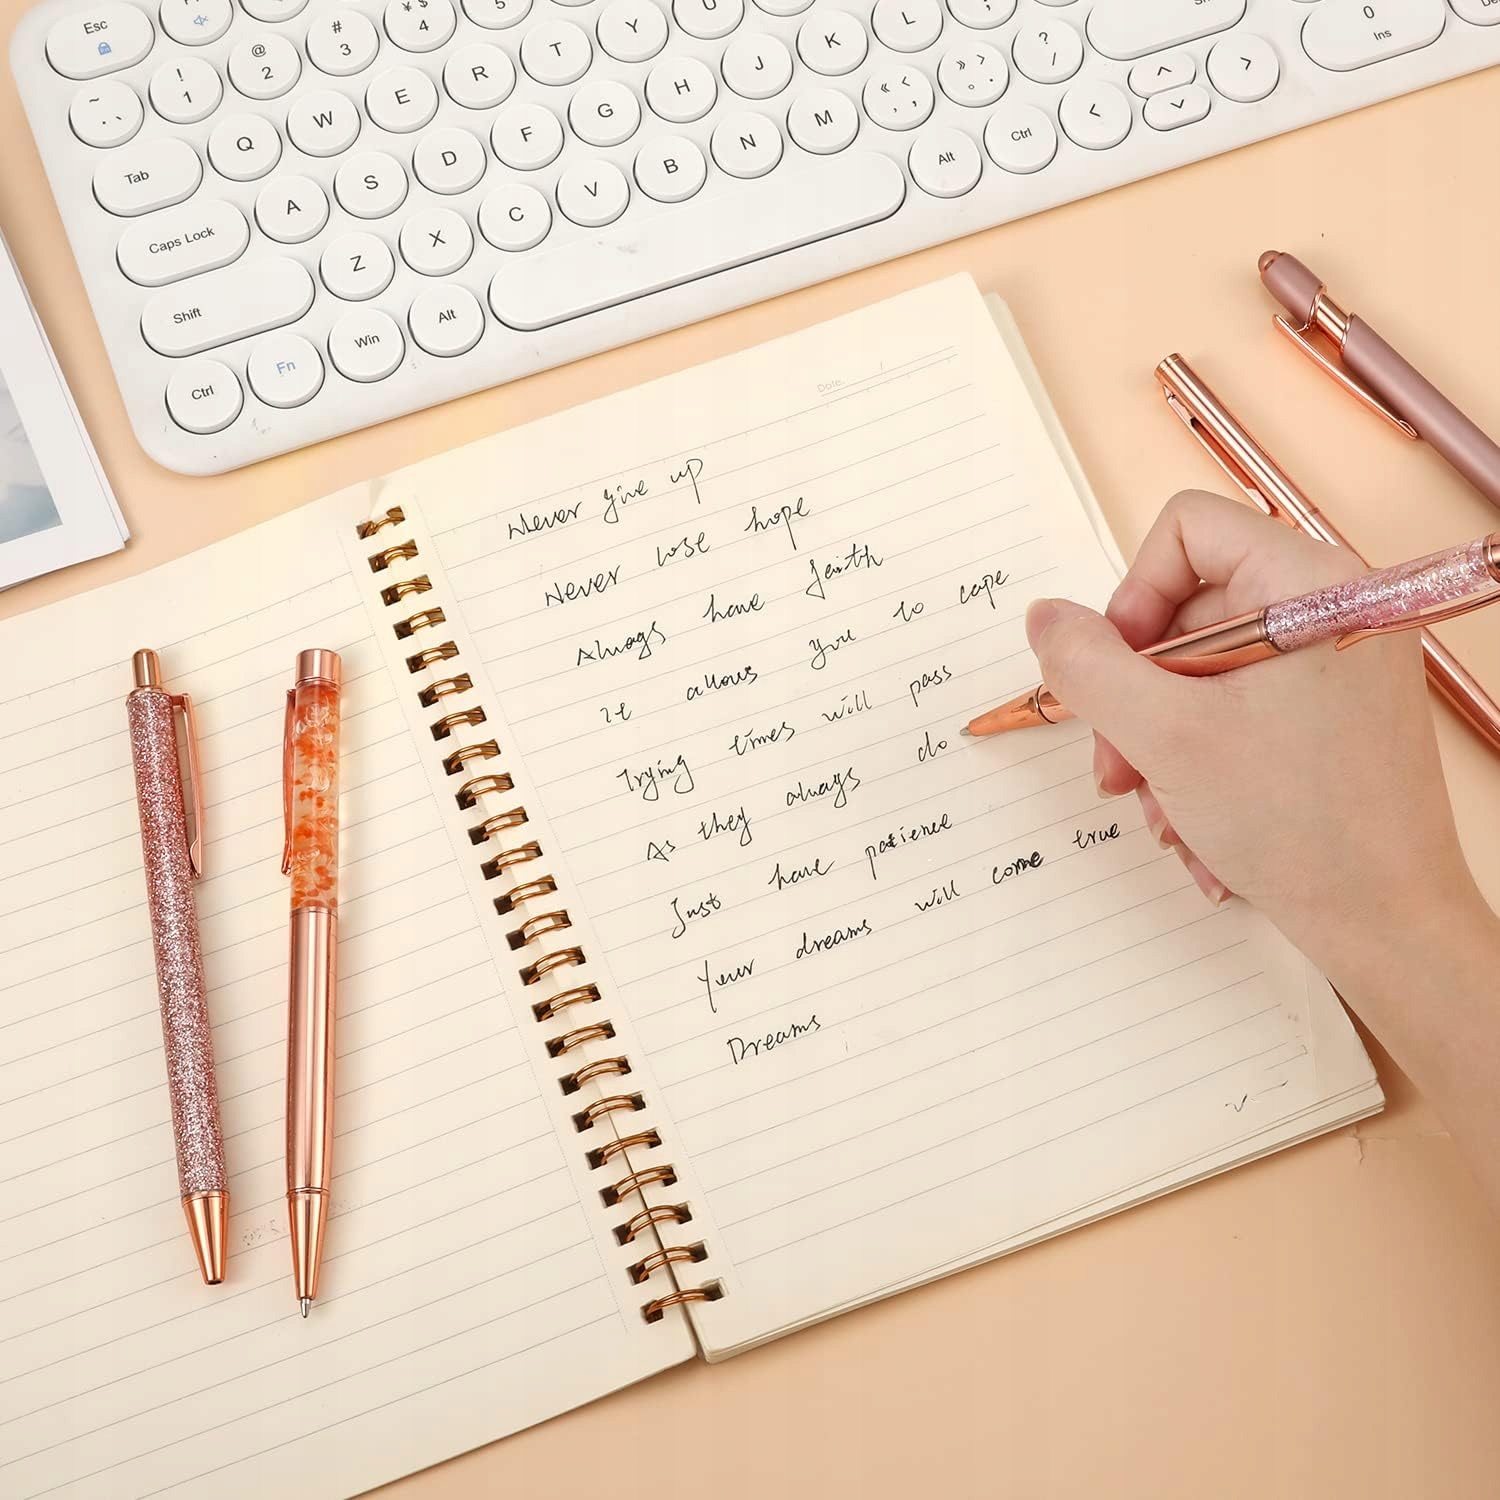 Esc
~ ! 1 @ 2 # 3 ¥ $ 4 5
Tab Q W E R T Y U
Caps Lock A S D F G H J K L ;
Shift Z X C V B N M « < , » > . ? /
Ctrl Fn Win Alt Alt Ctrl < > 0 Ins
Date. /
Never give up
Never lose hope
Always have faith
It allows you to cope
Trying times will pass
As they always do
Just have patience
Your dreams will come true
Dreams